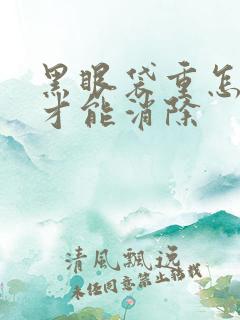 黑眼袋重怎
才能消除
清風飄逸
未经同意禁止转载